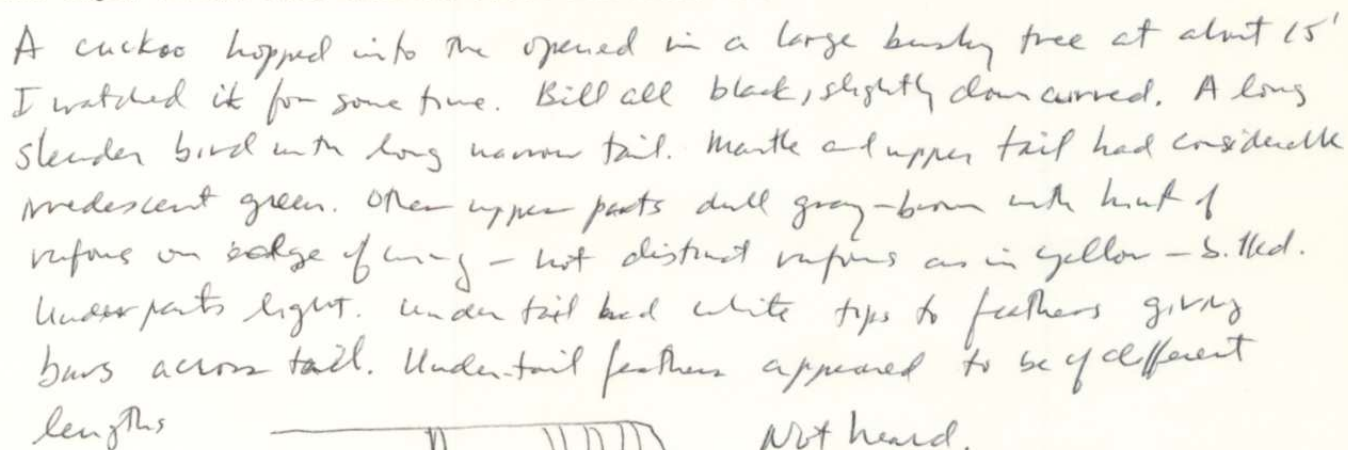 A cuckoo hopped into the opened in a large bushy tree at about 15'
I watched it for some time. Bill all black, slightly down curved. A long
slender bird with long narrow tail. Mantle and upper tail had considerable
irredescent green. Other upper parts dull gray-brown with hint of
rufous on edge of wing - not distinct rufous as in yellow-billed.
Underparts light. Under tail had white tips to feathers giving
bars across tail. Under-tail feathers appeared to be of different
lengths
Not heard.